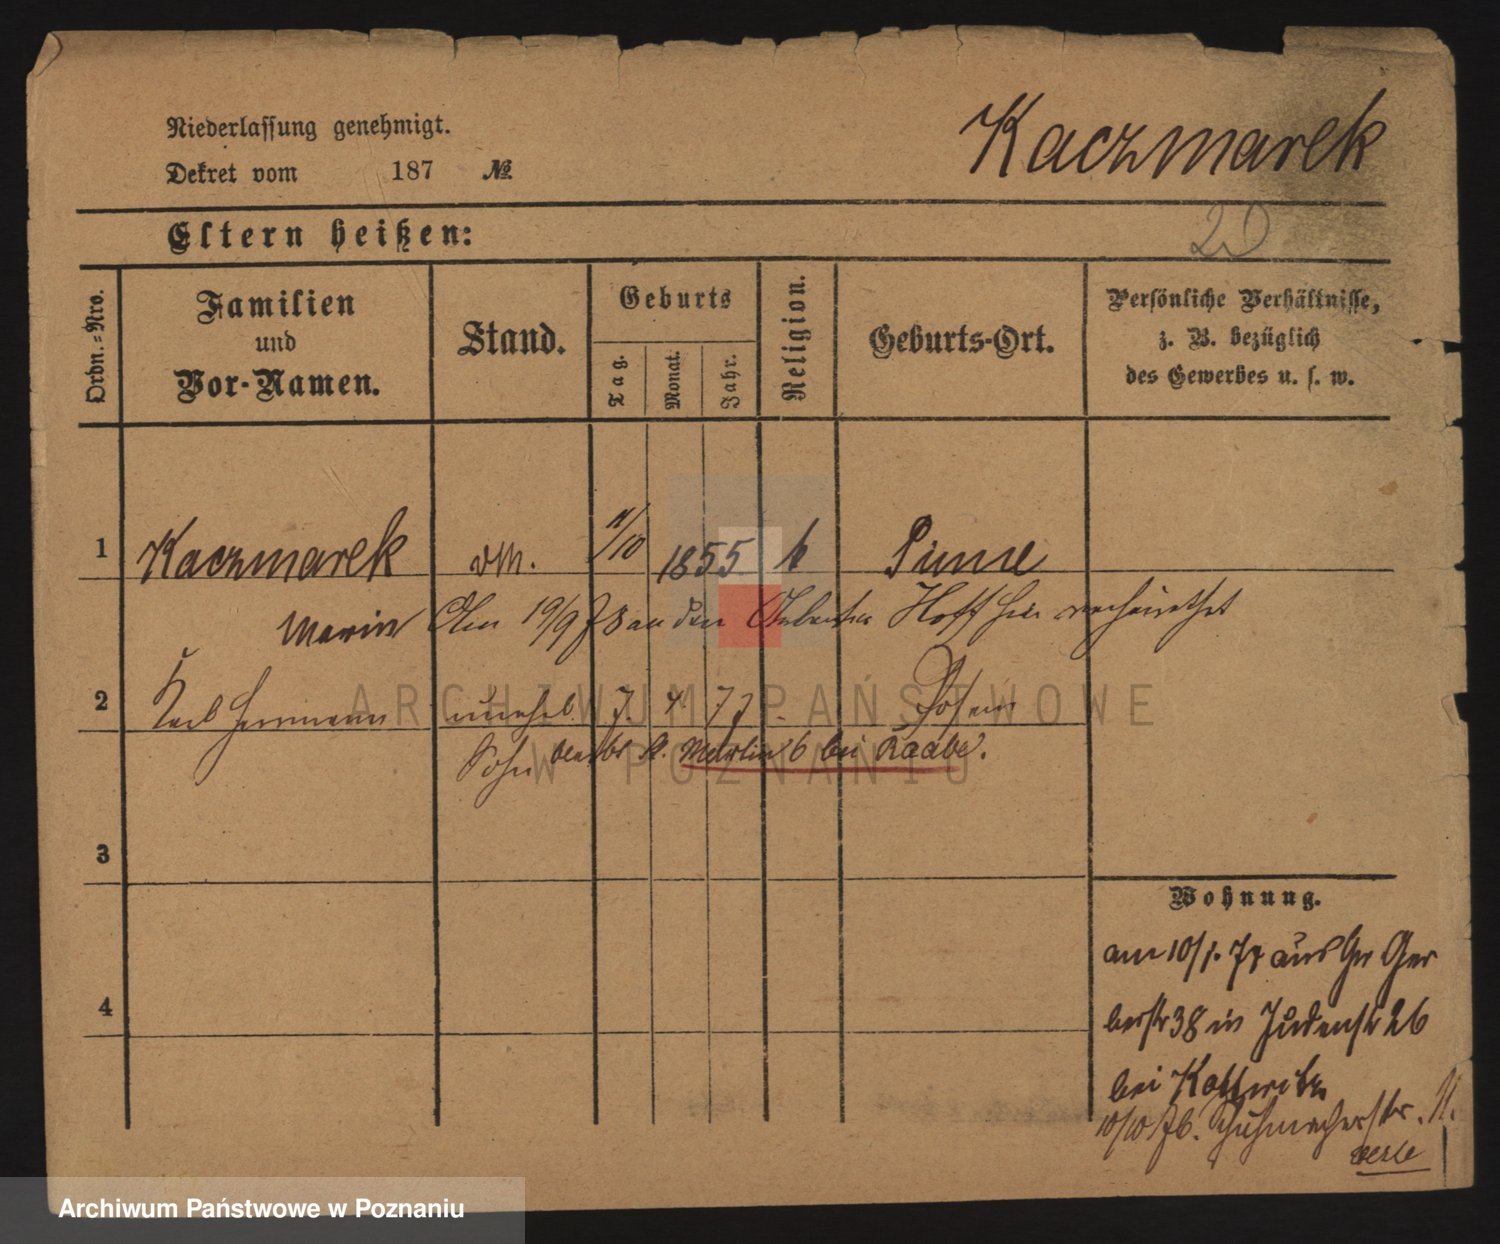 Niederlassung genehmigt.
Dekret vom 187 №
Kaczmarek
20
Eltern heißen:
Ordn.-Nro.
Familien
und
Vor-Namen.
Stand.
Geburts
Tag.
Monat.
Jahr.
Religion.
Geburts-Ort.
Persönliche Verhältnisse,
z. B. bezüglich
des Gewerbes u. s. w.
1 Kaczmarek 11/10 1855 k Pinne
Marie Am 19/9 78 an den Arbeiter Hoff hier verheirathet
2 Karl Hermann unehel. 7. 4. 77. Posen
Sohn St. Martin 6 bei Raabe.
3
4
Wohnung.
am 10/1. 78 aus Gr Ger
berstr 38 in Judenstr 26
bei Kottwitz
10/10 76. Schuhmacherstr. 11.
ARCHIWUM PAŃSTWOWE
W POZNANIU
Archiwum Państwowe w Poznaniu